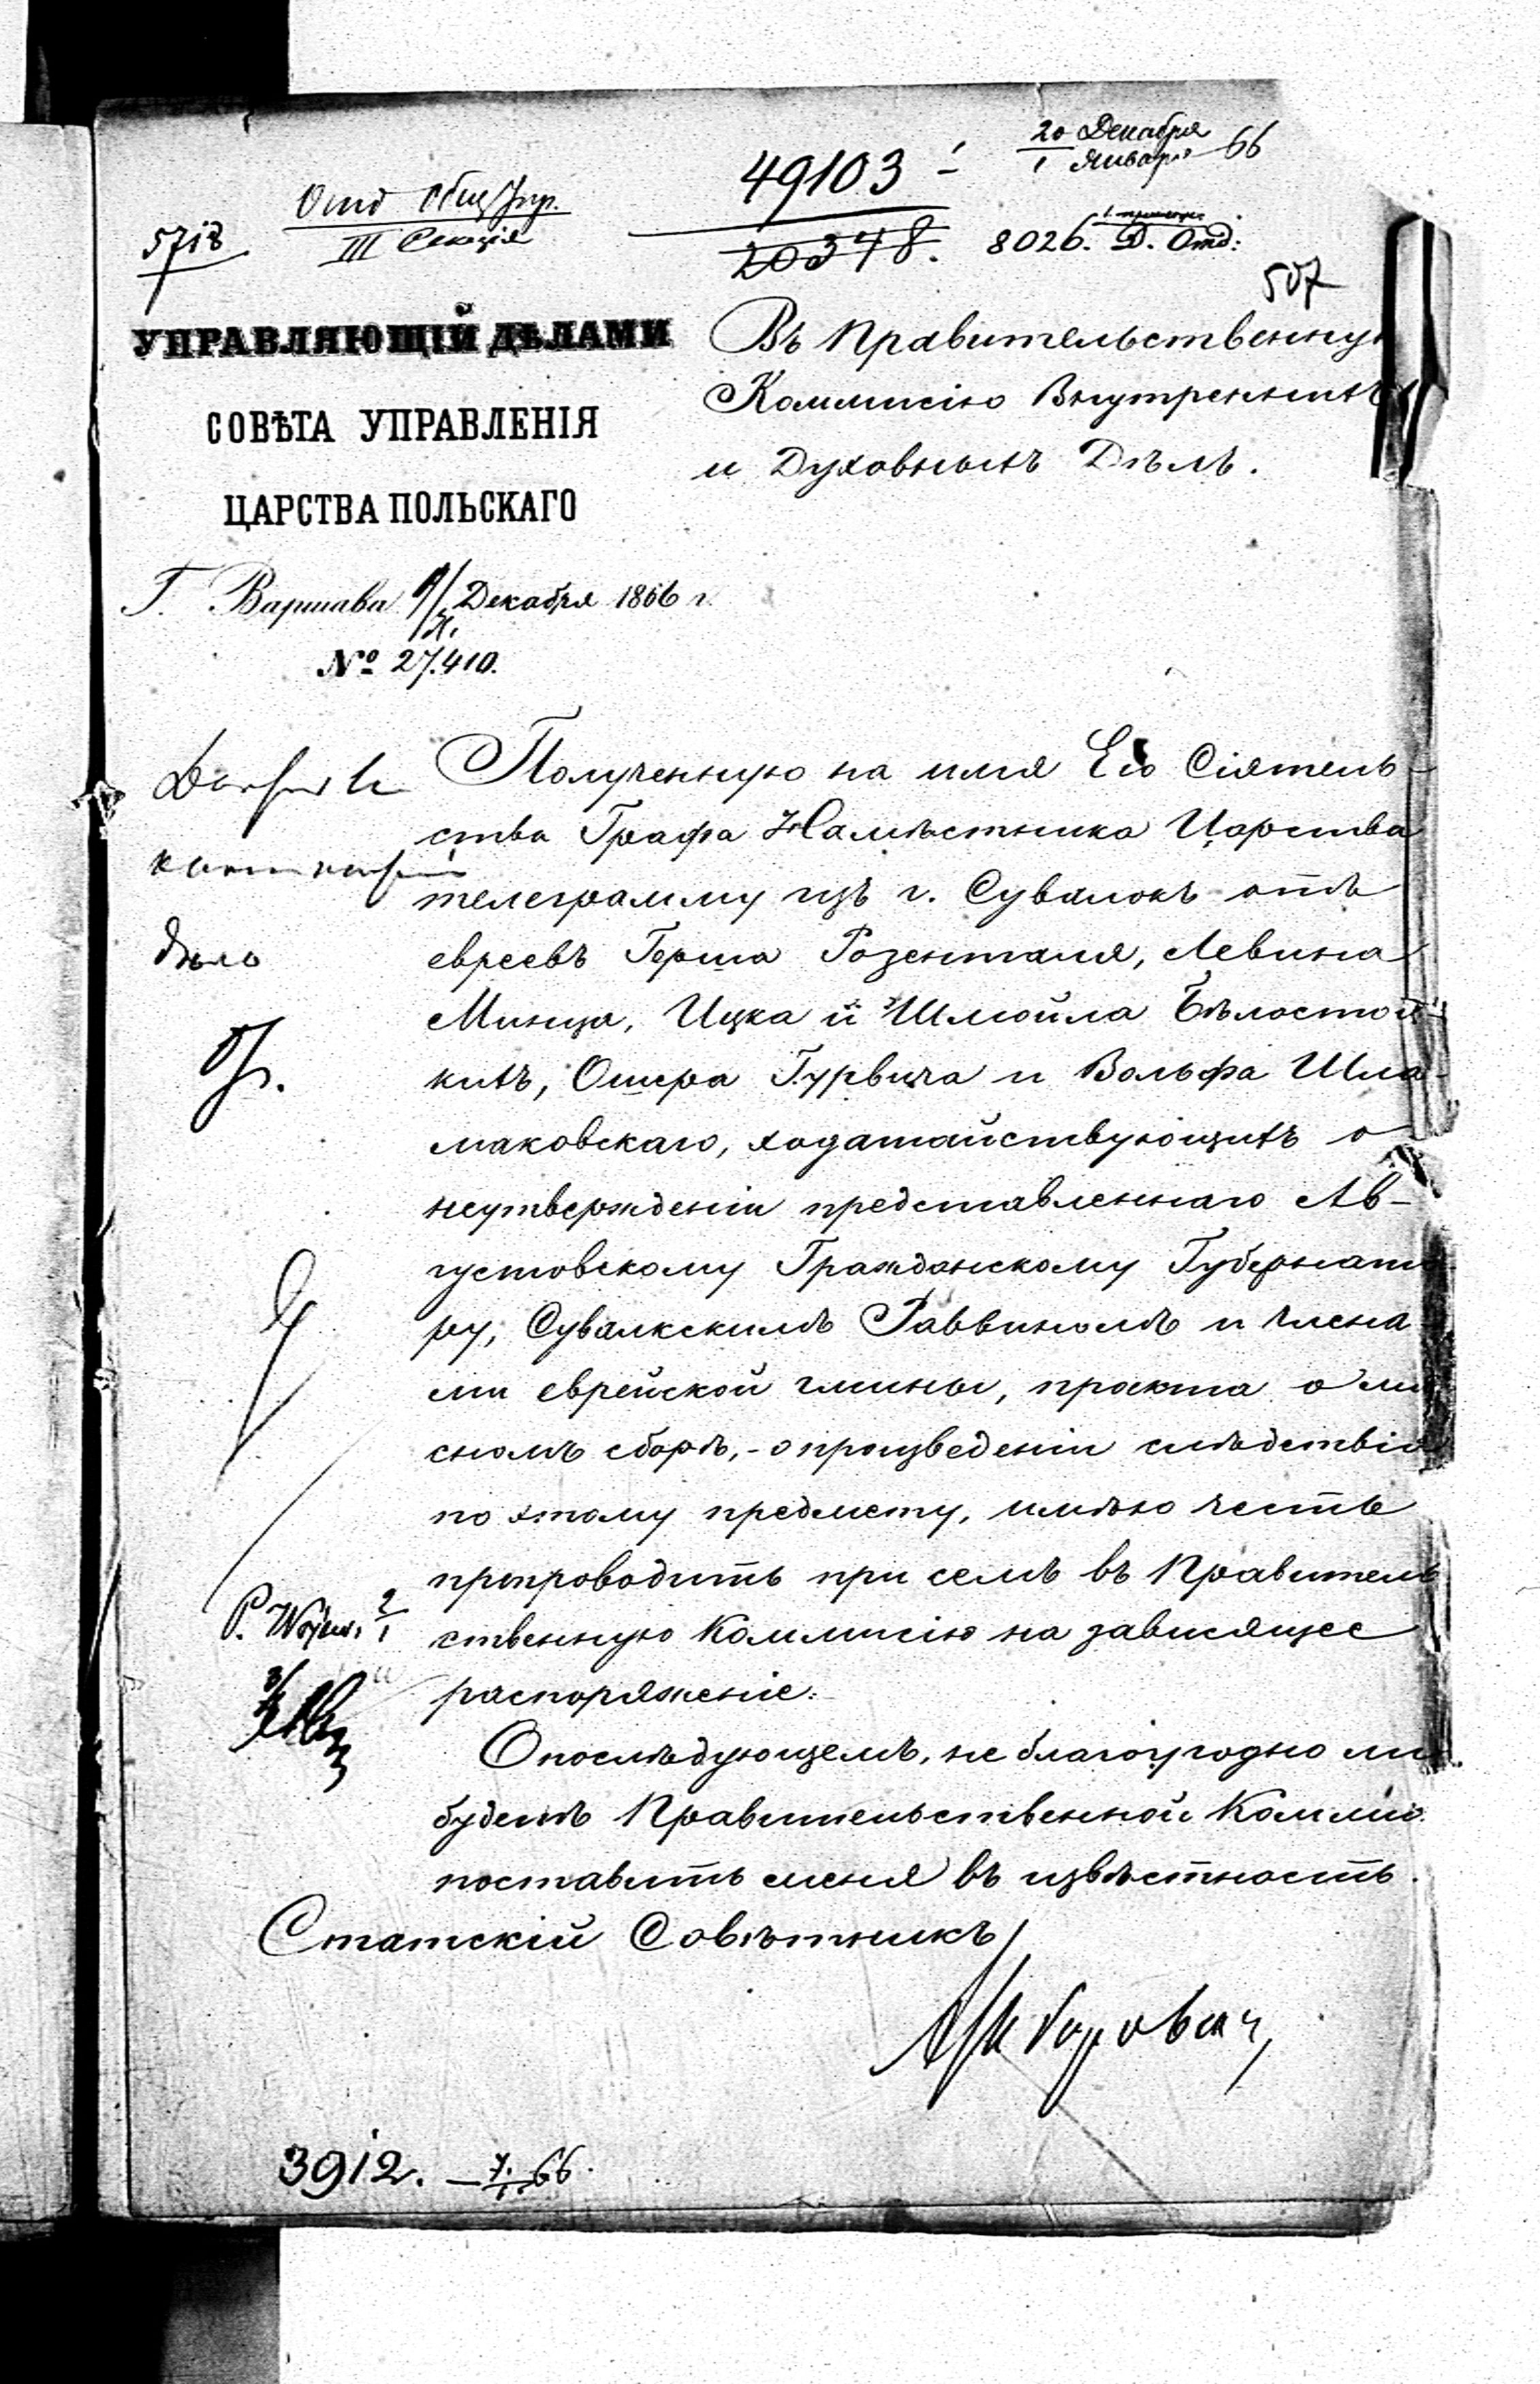 20 Декабря
1 Января 66
49103
Отд Общ Упр.
III Секція
5718
20378. 8026. Д. Отд:
507
УПРАВЛЯЮЩІЙ ДѢЛАМИ
СОВѢТА УПРАВЛЕНІЯ
ЦАРСТВА ПОЛЬСКАГО
Въ Правительственную
Коммисію Внутреннихъ
и Духовныхъ Дѣлъ.
Г. Варшава Декабря 1866 г.
№ 27.410.
Полученную на имя Его Сіятель-
ства Графа Намѣстника Царства
телеграмму изъ г. Сувалокъ отъ
евреевъ Герша Розенталя, Левина
Минца, Ицка и Шмойла Бѣлостоц-
кихъ, Ошера Гурвича и Вольфа Шла-
маковскаго, ходатайствующихъ о
неутвержденіи представленнаго Ав-
густовскому Гражданскому Губернато
ру, Сувалкскимъ Раввиномъ и члена
ми еврейской гмины, проекта о мя
сномъ сборѣ, - о произведеніи слѣдствія
по этому предмету, имѣю честь
препроводить при семъ въ Правитель
ственную Коммисію на зависящее
распоряженіе.
О послѣдующемъ, не благоугодно ли
будетъ Правительственной Коммис.
поставить меня въ извѣстность.
Статскій Совѣтникъ
дѣло
P. Wojew. 2/1
3912. 7. 66.